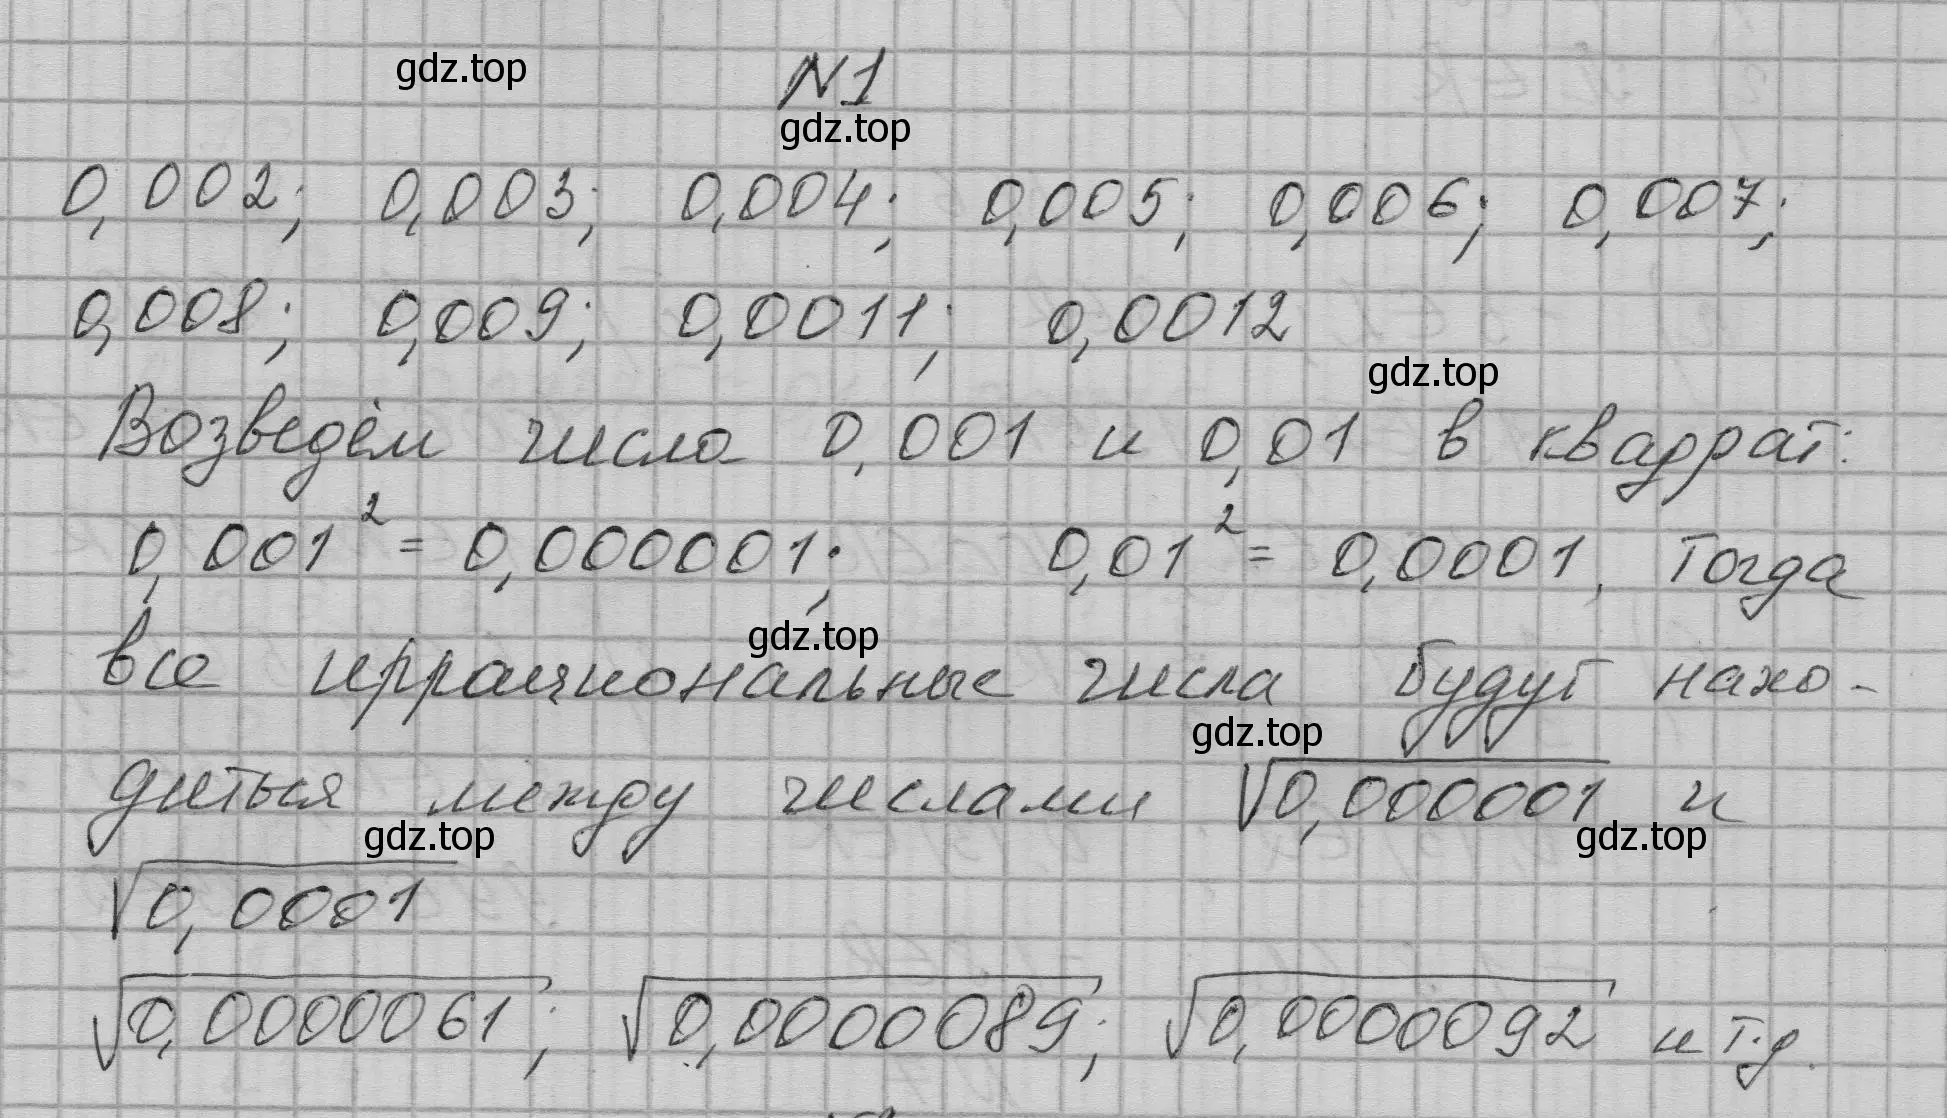 gdz.top
N1
gdz.top
0,002; 0,003; 0,004; 0,005; 0,006; 0,007;
0,008; 0,009; 0,0011; 0,0012
gdz.top
Возведём числа 0,001 и 0,01 в квадрат:
0,001² = 0,000001; 0,01² = 0,0001. Тогда
gdz.top
все иррациональные числа будут нахо-
gdz.top
диться между числами √0,000001 и
gdz.top gdz.top
√0,0001
√0,0000061; √0,0000089; √0,0000092 и т.д.